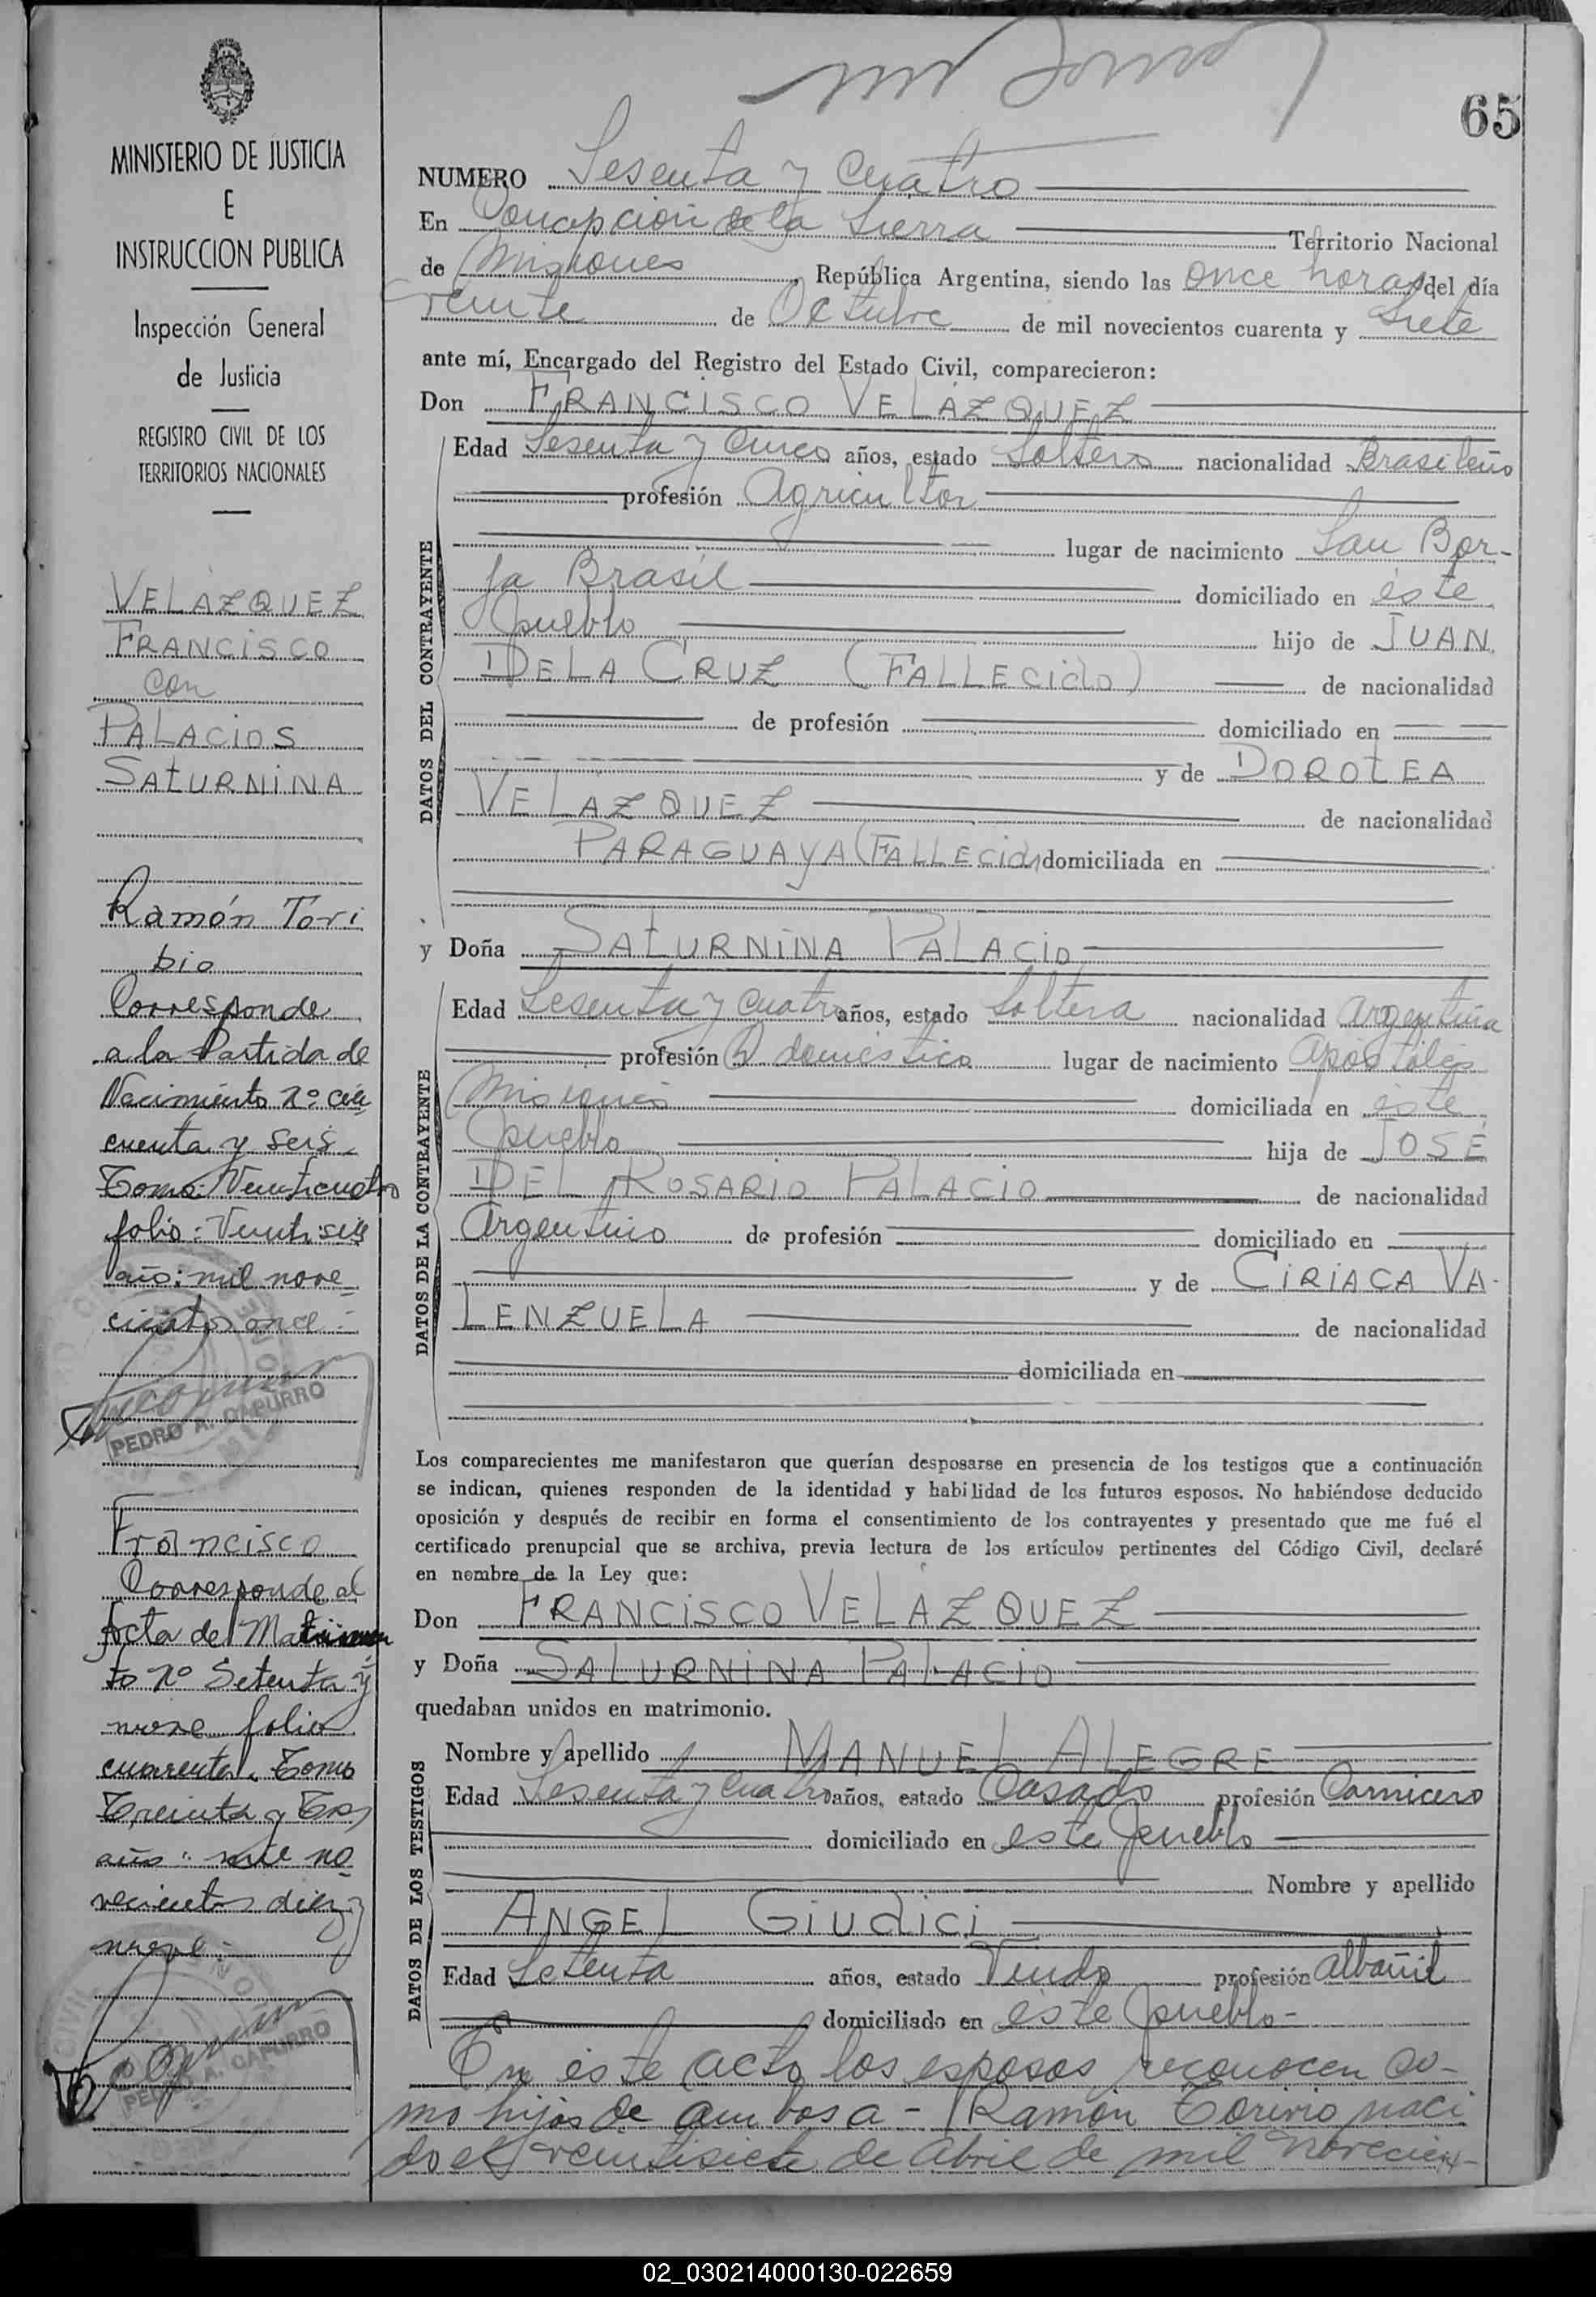 65
MINISTERIO DE JUSTICIA
E
INSTRUCCION PUBLICA
Inspección General
de Justicia
REGISTRO CIVIL DE LOS
TERRITORIOS NACIONALES
VELÁZQUEZ
FRANCISCO
con
PALACIOS
SATURNINA
Ramón Tori
bio
Corresponde
a la Partida de
Nacimiento nº cin
cuenta y seis
Tomo: Veinticuatro
folio: Veintiseis
año: mil nove
cientos once
PEDRO A. CAPURRO
Francisco
Corresponde al
Acta de Matrimon
to nº Setenta y
nueve folio
cuarenta. Tomo
Treinta y Tres
año: mil no
vecientos diez y
nueve.-
PEDRO A. CAPURRO
NUMERO Sesenta y cuatro
En Concepción de la Sierra Territorio Nacional
de Misiones, República Argentina, siendo las once horas del día
veinte de Octubre de mil novecientos cuarenta y siete
ante mí, Encargado del Registro del Estado Civil, comparecieron:
Don FRANCISCO VELÁZQUEZ
DATOS DEL CONTRAYENTE
Edad Sesenta y cinco años, estado Soltero nacionalidad Brasileño
profesión Agricultor
lugar de nacimiento San Bor-
ja Brasil domiciliado en éste
pueblo hijo de JUAN
DE LA CRUZ (FALLECIDO) de nacionalidad
de profesión domiciliado en
y de DOROTEA
VELAZQUEZ de nacionalidad
PARAGUAYA (FALLECIDA) domiciliada en
y Doña SATURNINA PALACIO
DATOS DE LA CONTRAYENTE
Edad Sesenta y cuatro años, estado Soltera nacionalidad Argentina
profesión Q. domestico lugar de nacimiento Apóstoles
Misiones domiciliada en éste
pueblo hija de JOSÉ
DEL ROSARIO PALACIO de nacionalidad
Argentino de profesión domiciliado en
y de CIRIACA VA-
LENZUELA de nacionalidad
domiciliada en
Los comparecientes me manifestaron que querían desposarse en presencia de los testigos que a continuación
se indican, quienes responden de la identidad y habilidad de los futuros esposos. No habiéndose deducido
oposición y después de recibir en forma el consentimiento de los contrayentes y presentado que me fué el
certificado prenupcial que se archiva, previa lectura de los artículos pertinentes del Código Civil, declaré
en nombre de la Ley que:
Don FRANCISCO VELÁZQUEZ
y Doña SATURNINA PALACIO
quedaban unidos en matrimonio.
DATOS DE LOS TESTIGOS
Nombre y apellido MANUEL ALEGRE
Edad Sesenta y cuatro años, estado Casado profesión Carnicero
domiciliado en este pueblo
Nombre y apellido
ANGEL GIUDICI
Edad Setenta años, estado Viudo profesión albañil
domiciliado en este pueblo-
En este acto los esposos reconocen co-
mo hijos de ambos a - Ramón Torivio naci
do el veintisiete de Abril de mil novecien-
02_030214000130-022659